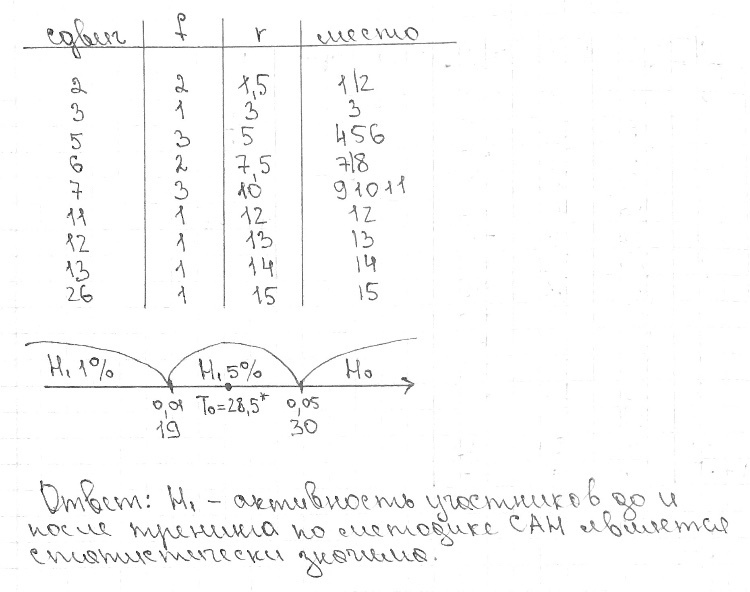 сдвиг f r место
2 2 1,5 1/2
3 1 3 3
5 3 5 4 5 6
6 2 7,5 7/8
7 3 10 9 10 11
11 1 12 12
12 1 13 13
13 1 14 14
26 1 15 15
H₁ 1% H₁ 5% H₀
0,01 T₀=28,5* 0,05
19 30
Ответ: H₁ – активность участников до и
после тренинга по методике САН является
статистически значимо.